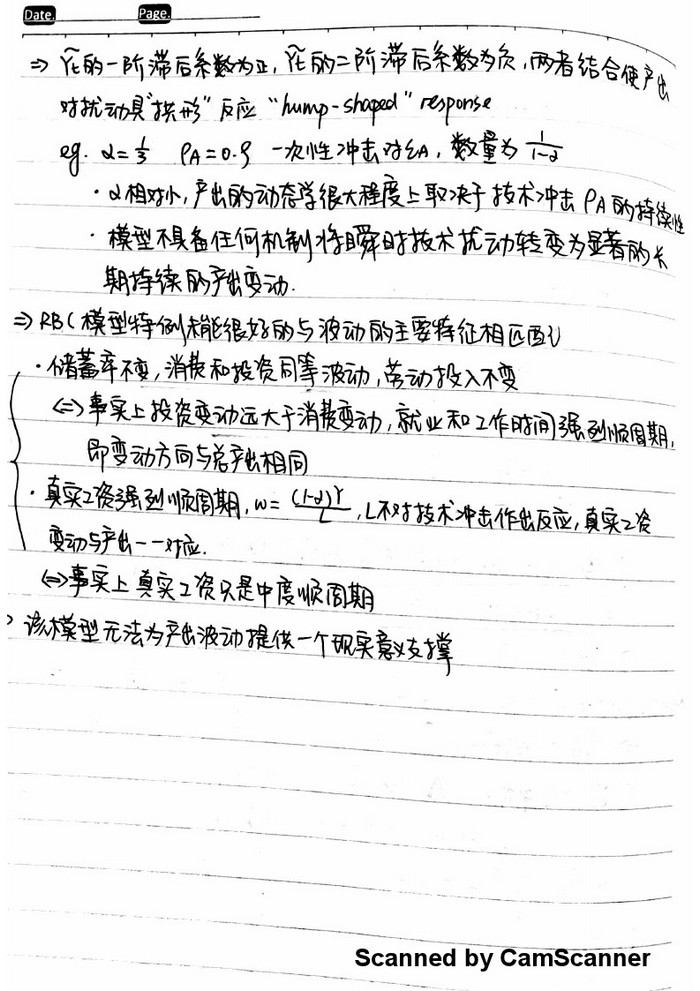 Date. Page.
⇒ Ỹt的一阶滞后系数为正,Ỹt的二阶滞后系数为负,两者结合使产出
对扰动具"拱形"反应 "hump-shaped" response
eg. α=1/3 ρA=0.9 一次性冲击对εA,数量为 1/(1-α)
· α相对小,产出的动态学很大程度上取决于技术冲击ρA的持续性
· 模型不具备任何机制将瞬时技术扰动转变为显著的长
期持续的产出变动.
⇒ RBC模型特例未能很好的与波动的主要特征相匹配
· 储蓄率不变,消费和投资同等波动,劳动投入不变
⇔ 事实上投资变动远大于消费变动,就业和工作时间强烈顺周期,
即变动方向与总产出相同
· 真实工资强烈顺周期,w= (1-α)Y/L ,L不对技术冲击作出反应,真实工资
变动与产出一一对应.
⇔ 事实上真实工资只是中度顺周期
该模型无法为产出波动提供一个现实意义支撑
Scanned by CamScanner